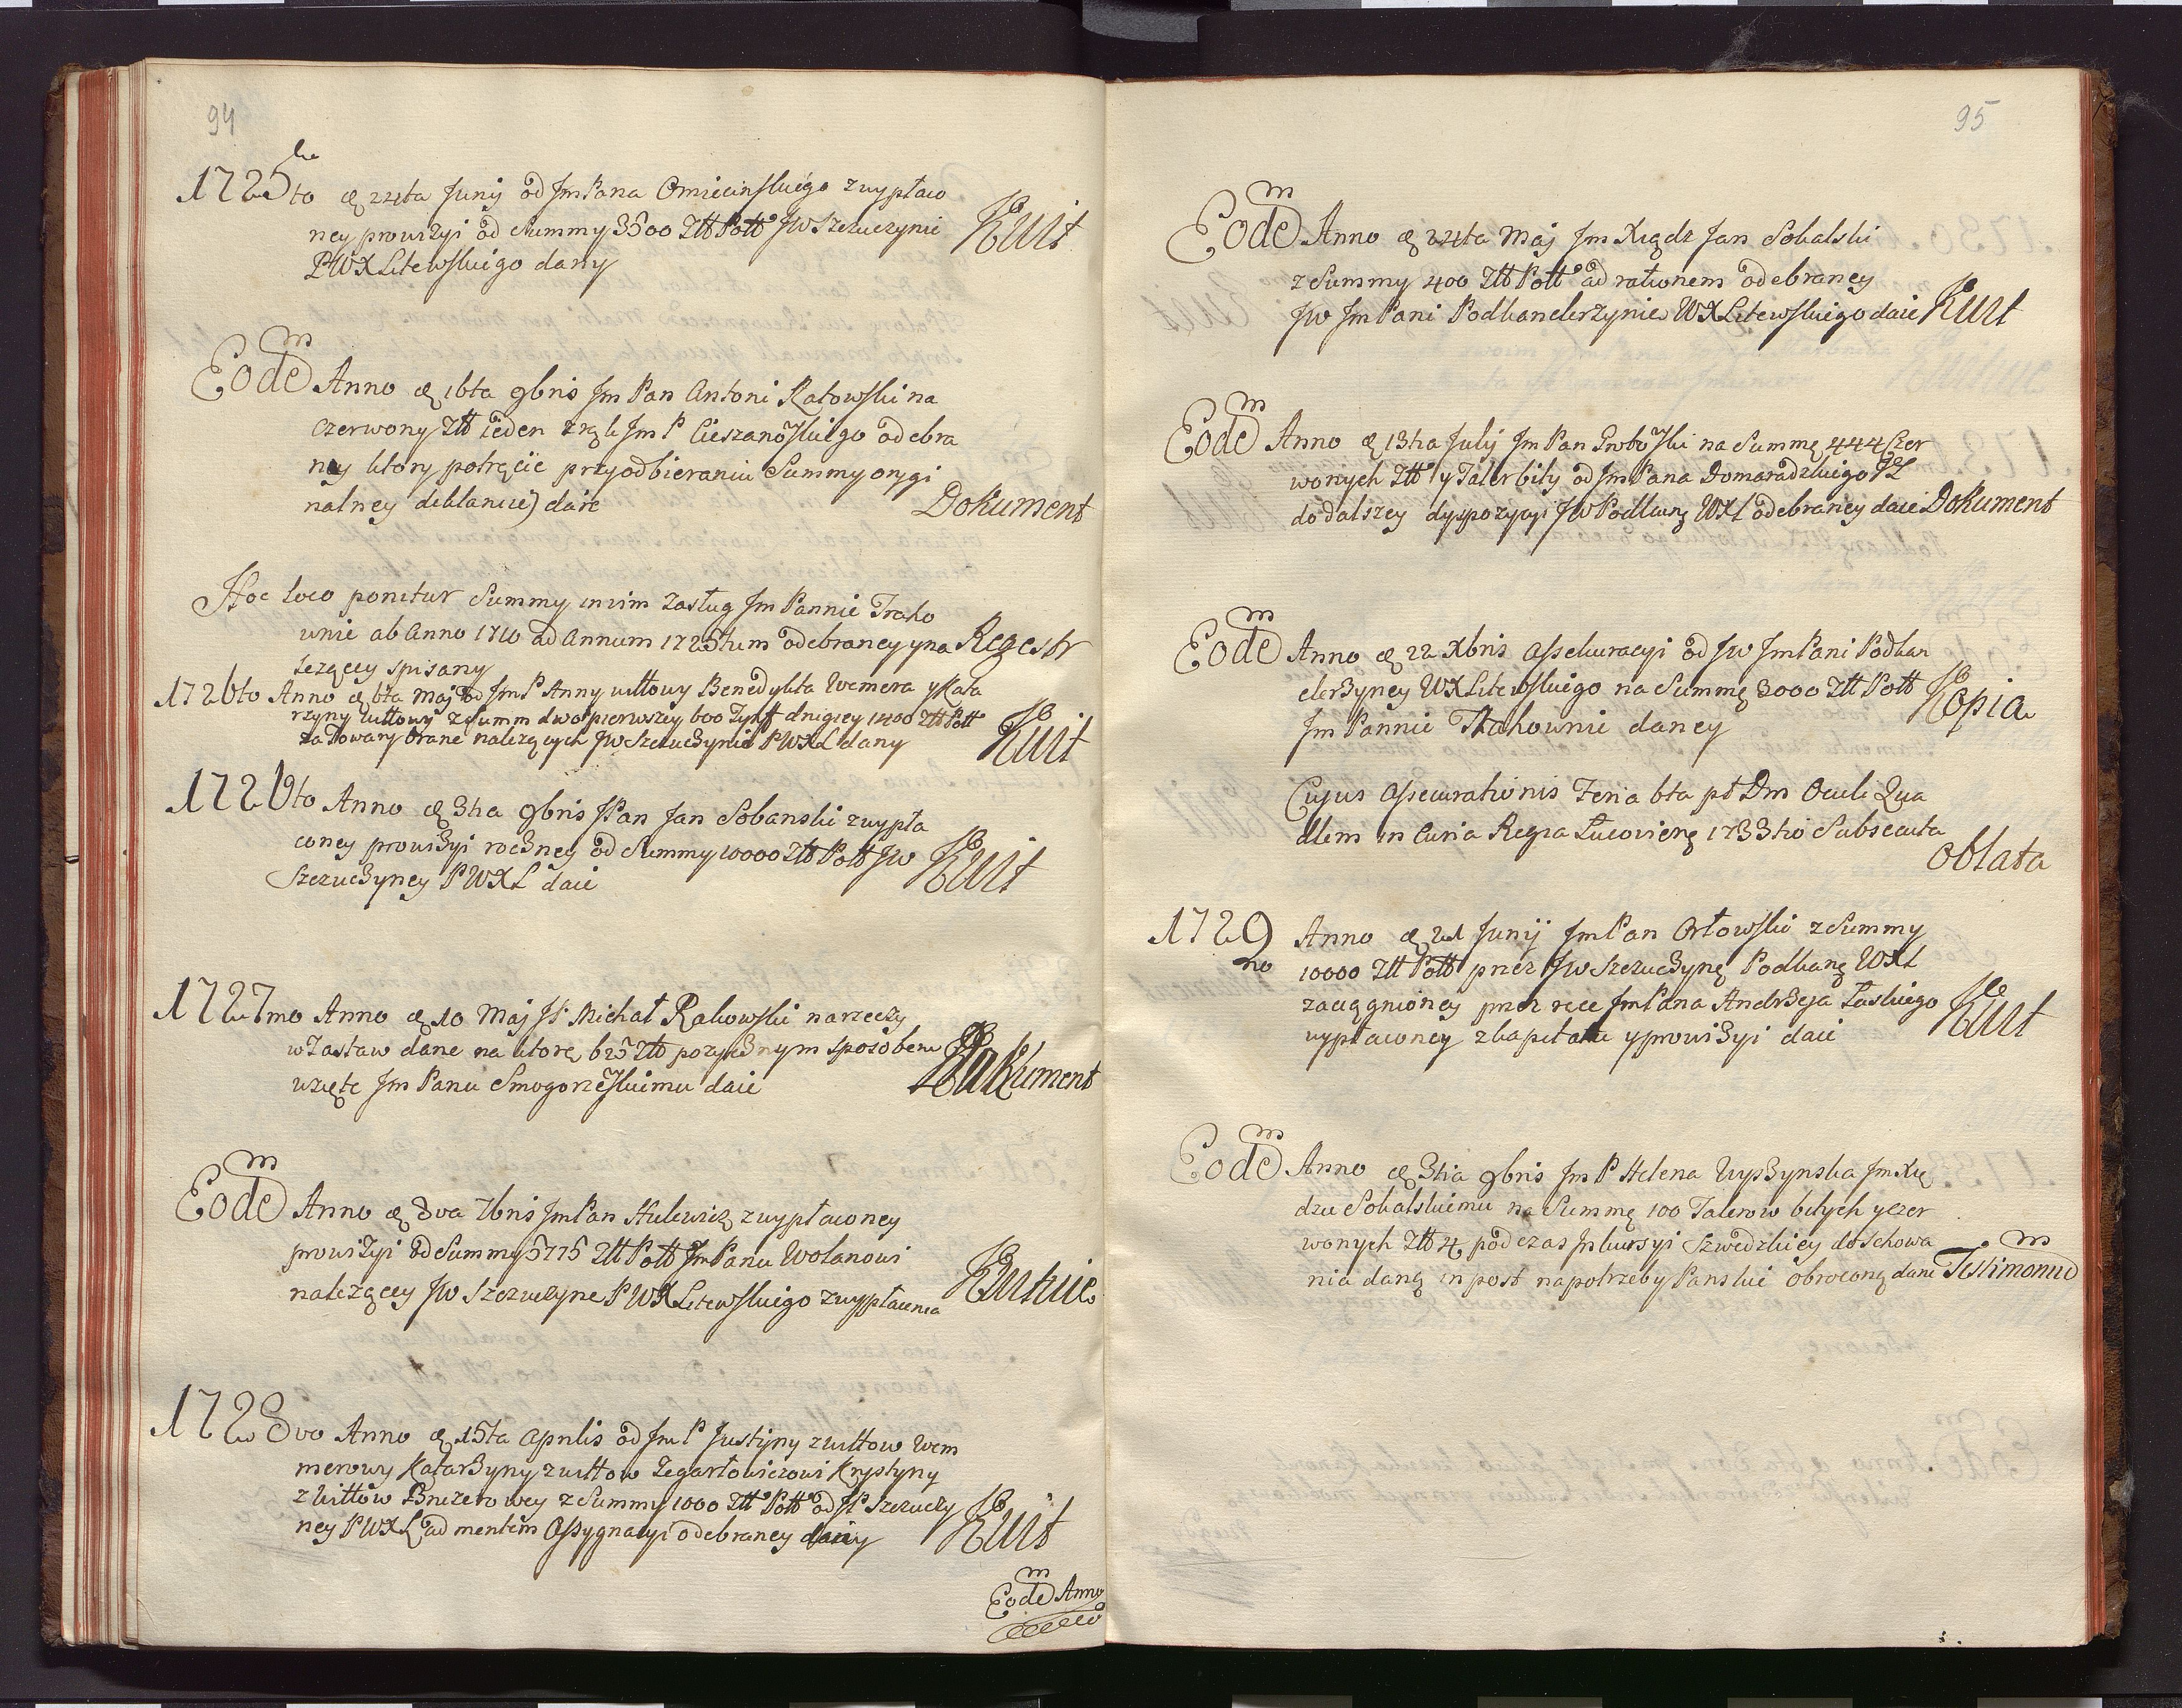 94
1725to d. 24ta Junij od Jm Pana Omiecinskiego z wypłaco
ney prowizyi od Summy 3500 Złł Poll JW Szczuczynie Kwit
P W X Litewskiego dany
Eodem Anno d. 16ta 9bris Jm Pan Antoni Ratowski na
Czerwony Złł ieden z rąk Jm P Cieszanoskiego odebra
ny ktory potrącic przy odbieraniu Summy orygi
nalney deklaruie) daie Dokument
Hoc loco ponitur Summy in vim Zasług Jm Pannie Trako
wnie ab Anno 1710 ad Annum 1725tum odebraney y na Regestr
lezącey spisany
1726to Anno d. 6ta Maj od Jm P Anny Wittowy Benedykta Wemera y Kata
rzyny Wittowy z Summ dwo pierwszey 600 Tynff drugiey 1400 Złł Poll
za Towary brane nalezących JW Szczuczynie P W X L dany Kwit
1726to Anno d. 3tia 9bris JPan Jan Sobanski z wypła
coney prowizyi roczney od Summy 10000 Złł Poll JW Kwit
Szczuczyney P W X L daie
1727mo Anno d. 10 Maj JP Michał Rakowski na rzeczy
w Zastaw dane na ktorę 625 Złł pozycznym sposobem Dokument
wzięte Jm Panu Smogorzeskiemu daie
Eodem Anno d. 8va 7bris Jm Pan Hulewicz z wypłaconey
prowizyi od Summy 5775 Złł Poll Jm Panu Wolanowi
nalezącey JW Szczuczyne P W X Litewskiego z wypłacenia Kwituie
1728vo Anno d. 15ta Aprilis od Jm P Justyny z Wittow Wem
merowy Katarzyny z Wittow Zegartowiczowi Krystyny
z Wittow Bnizerowey z Summy 1000 Złł Poll od JP Szczuczy
ney P W X L ad mentem Assygnacyi odebraney dany Kwit
Eodem Anno
95
Eodem Anno d. 24ta Maj Jm Xiądz Jan Sokalski
z Summy 400 Złł Poll ad rationem odebraney
JW Jm Pani Podkanclerzynie W X Litewskiego daie Kwit
Eodem Anno d. 13tia Julij Jm Pan Groboski na Summę 444 Czer
wonych Złł y Taler bity od Jm Pana Domaradzkiego
do dalszey dyspozycyi JW Podkanę W X L odebraney daie Dokument
Eodem Anno d. 22 Xbris Assekuracyi od JW Jm Pani Podkan
clerzyney W X Litewskiego na Summę 3000 Złł Poll Kopia
Jm Pannie Trakownie daney
Cujus Assecurationis Feria 6ta pt Dm Oculi Qua
dlem in Curia Regia Lucovieng 1733tio Subsecuta
Oblata
1729no Anno d. 21 Junij Jm Pan Orłowski z Summy
10000 Złł Poll przez JW Szczuczynę Podkanę W X L
zaciągnioney przez ręce Jm Pana Andrzeja Laskiego
wypłaconey z kapitału y prowizyi daie Kwit
Eodem Anno d. 3tia 9bris Jm P Helena Wyszynska Jm Xię
dzu Sokalskiemu na Summę 100 Talerow bitych y czer
wonych Złł 4 podczas Inkursyi Szwedzkiey do Schowa
nia daną in post na potrzeby Panskie obroconą dane Testimonium